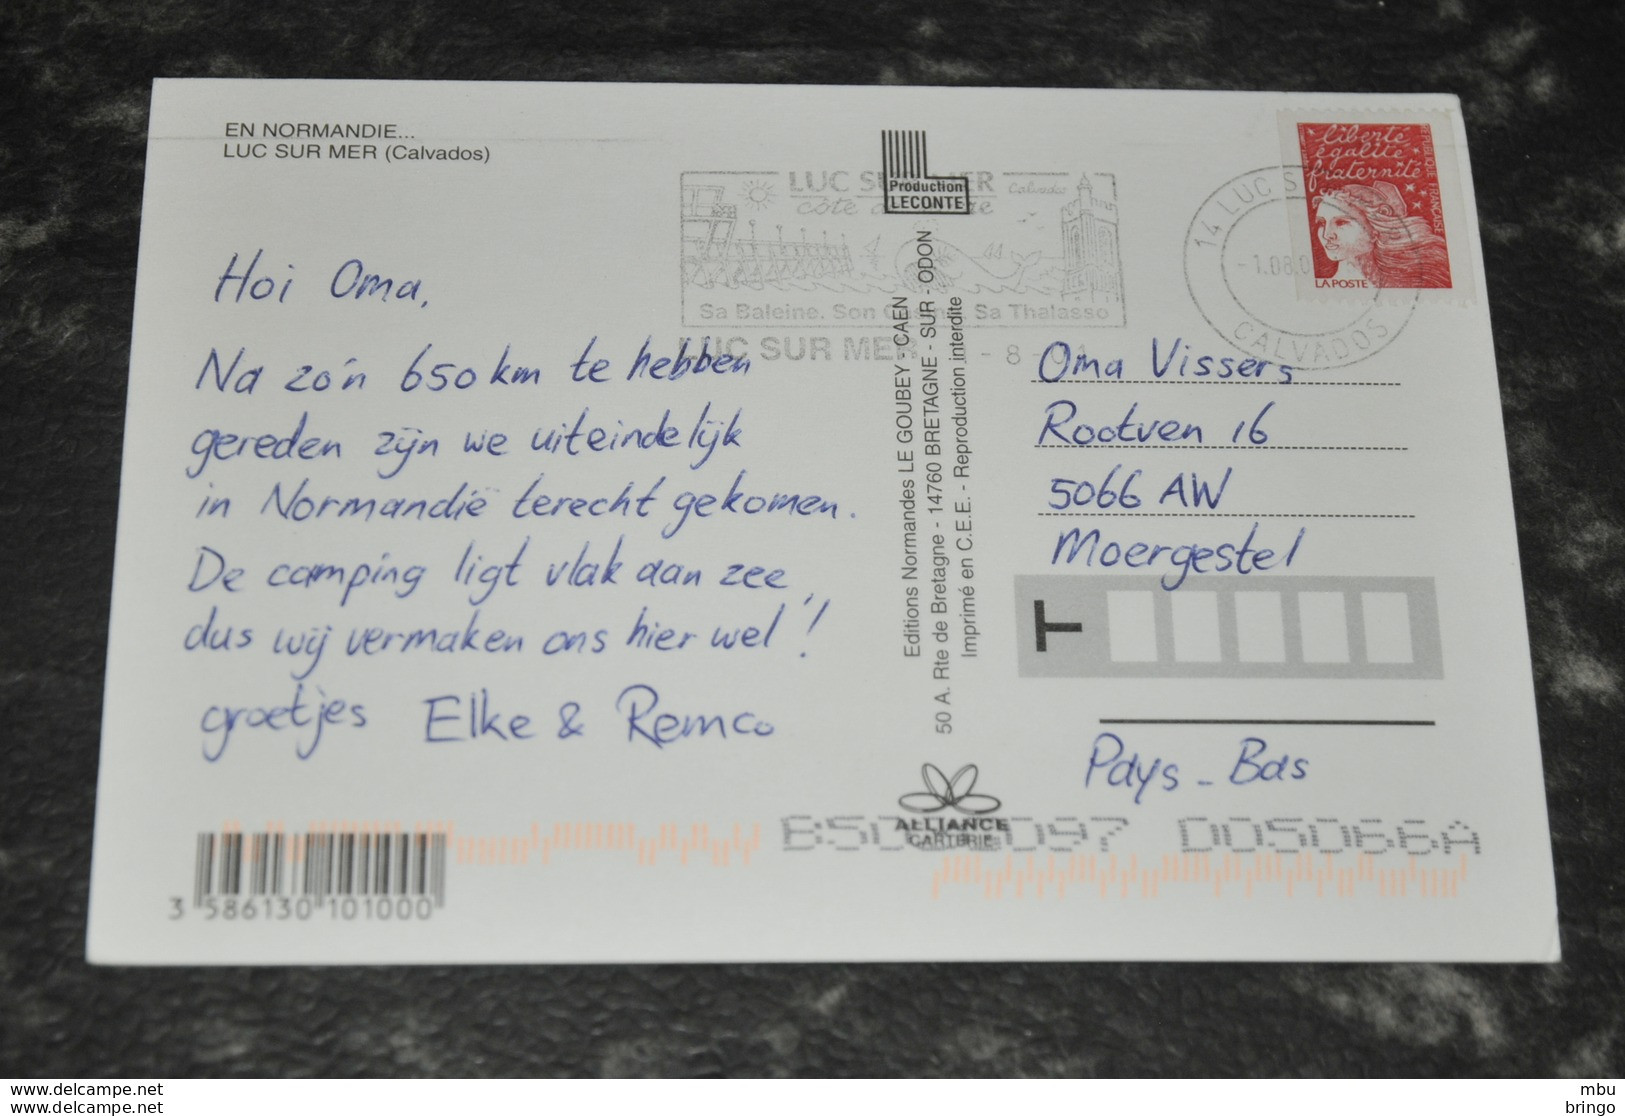 EN NORMANDIE...
LUC SUR MER (Calvados)
Hoi Oma,
Na zo'n 650 km te hebben
gereden zijn we uiteindelijk
in Normandië terecht gekomen.
De camping ligt vlak aan zee,
dus wij vermaken ons hier wel!
groetjes Elke & Remco
3 586130 101000
Production
LECONTE
LUC SUR MER
Calvados
Sa Baleine. Son Casino. Sa Thalasso
LUC SUR MER
Editions Normandes LE GOUBEY - CAEN
50 A. Rte de Bretagne - 14760 BRETAGNE - SUR - ODON
Imprimé en C.E.E. - Reproduction interdite
ALLIANCE
CARTERIE
liberté
égalité
fraternité
RÉPUBLIQUE FRANÇAISE
LA POSTE
14 LUC S
-1.08.0
CALVADOS
Oma Vissers
Rootven 16
5066 AW
Moergestel
T
Pays-Bas
D05066A
delcampe.net
delcampe.net
mbu
bringo